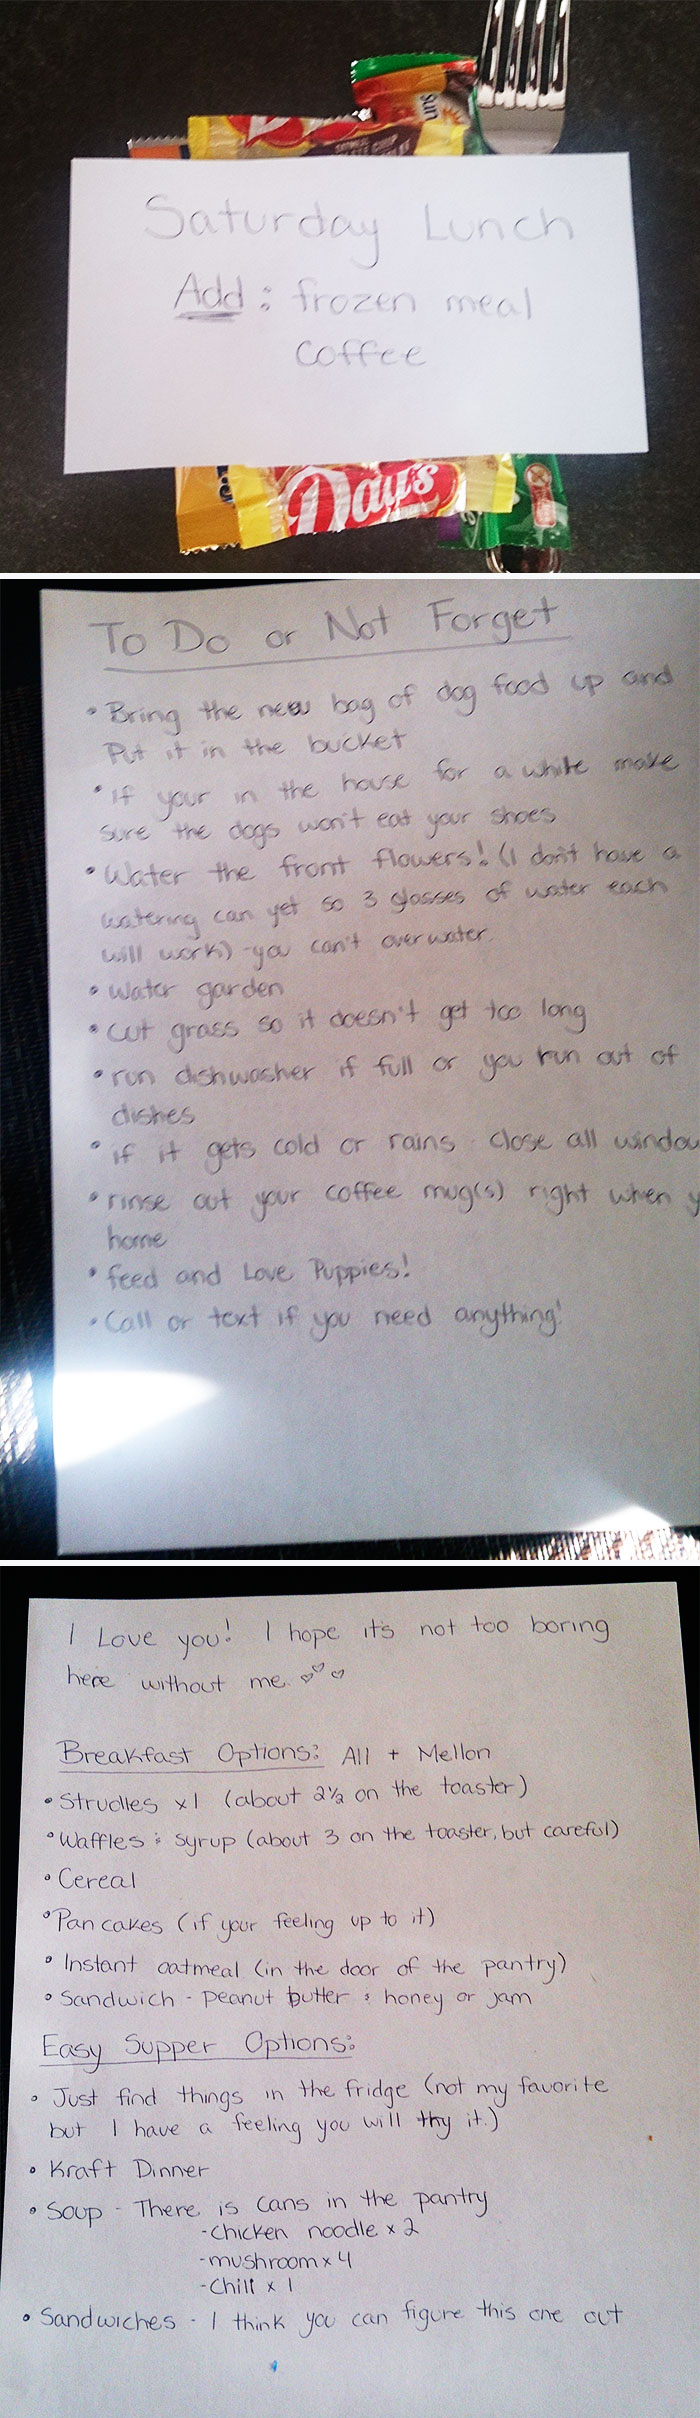 Sun
Saturday Lunch
Add: frozen meal
coffee
Day's
To Do or Not Forget
• Bring the new bag of dog food up and
Put it in the bucket
• if your in the house for a while make
sure the dogs won't eat your shoes
• Water the front flowers! (I don't have a
watering can yet so 3 glasses of water each
will work) - you can't over water.
• water garden
• cut grass so it doesn't get too long
• run dishwasher if full or you run out of
dishes
• if it gets cold or rains close all window
• rinse out your coffee mug(s) right when y
home
• feed and Love Puppies!
• Call or text if you need anything!
I Love you! I hope it's not too boring
here without me. ♡♡♡
Breakfast Options: All + Mellon
• Strudles x1 (about 2½ on the toaster)
• Waffles & syrup (about 3 on the toaster, but careful)
• Cereal
• Pancakes (if your feeling up to it)
• Instant oatmeal (in the door of the pantry)
• Sandwich - peanut butter & honey or jam
Easy Supper Options:
• Just find things in the fridge (not my favorite
but I have a feeling you will try it.)
• Kraft Dinner
• Soup - There is cans in the pantry
- chicken noodle x 2
- mushroom x 4
- Chili x 1
• Sandwiches - I think you can figure this one out